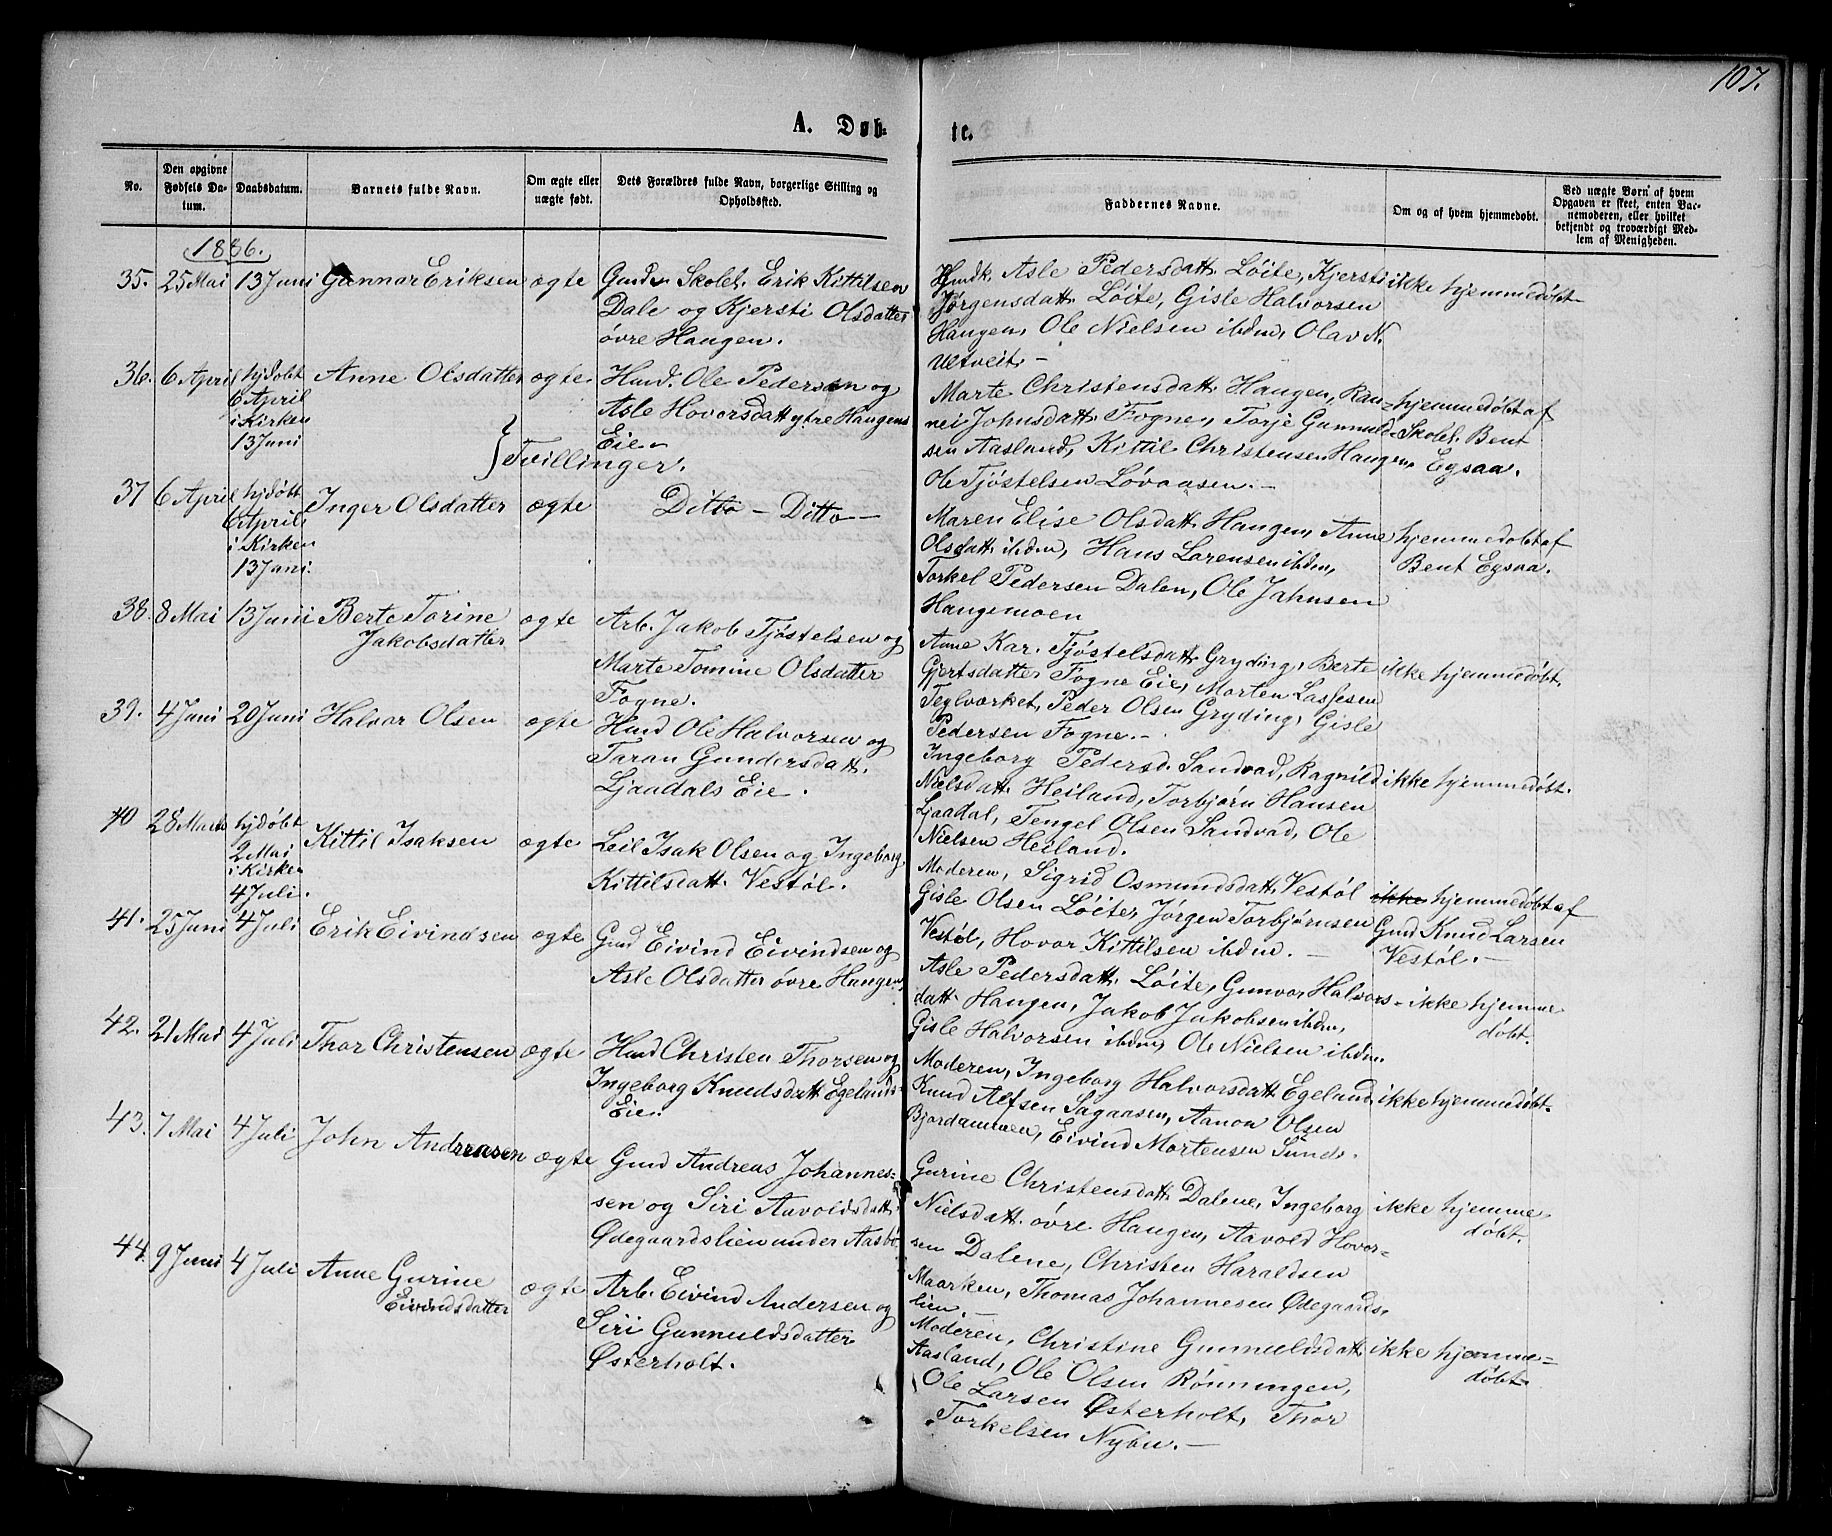 107.
A. Døb-
te.
No.
Den opgivne
Fødsels Da-
tum.
Daabsdatum.
Barnets fulde Navn.
Om ægte eller
uægte født.
Dets Forældres fulde Navn, borgerlige Stilling og
Opholdssted.
Faddernes Navne.
Om og af hvem hjemmedøbt.
Ved uægte Børn af hvem
Opgaven er skeet, enten Bar-
nemoderen, eller hvilket
bekjendt og troværdigt Med-
lem af Menigheden.
1886.
35. 25 Mai 13 Juni Gunnar Eriksen ægte
Skolel. Erik Kittilsen
Dale og Kjersti Olsdatter
øvre Haugen.
Asle Pedersdatt. Løite, Kjersti
Jørgensdatt Løite, Gisle Halvorsen
Haugen, Ole Nielsen ibdm, Olav N.
Uetveit -
ikke hjemmedøbt
36. 6 April hjdøbt
6 April
i Kirken
13 Juni
Anne Olsdatter ægte
Husd. Ole Pedersen og
Asle Hovorsdatt ytre Haugens
Eie
Tvillinger.
Marte Christensdatt Haugen, Ran-
nei Johnsdatt Fogne, Torje Gunnuld-
sen Aasland, Kittil Christensen Haugen,
Ole Tjøstelsen Løvaasen. -
hjemmedøbt af
Skolel. Bent
Egsaa.
37 6 April hjdøbt
6 April
i Kirken
13 Juni.
Inger Olsdatter ægte
Ditto - Ditto -
Maren Elise Olsdatt Haugen, Anne
Olsdatt ibdm, Hans Larensen ibdm,
Torkel Pedersen Dalen, Ole Jahnsen
Haugemoen
hjemmedøbt af
Bent Egsaa.
38. 8 Mai 13 Juni Berte Torine
Jakobsdatter
ægte
Arb. Jakob Tjøstelsen og
Marte Tomine Olsdatter
Fogne.
Anne Kar. Tjøstelsdatt Gryding, Berte
Gjertsdatter Fogne Eie, Morten Lassesen
Teglværket, Peder Olsen Gryding, Gisle
Pedersen Fogne. -
ikke hjemmedøbt.
39. 4 Juni 20 Juni Halvor Olsen ægte
Husd Ole Halvorsen og
Taran Gundersdatt.
Ljaadals Eie.
Ingeborg Pedersd. Sandvad, Ragnild
Nielsdatt. Heiland, Torbjørn Hansen
Ljaadal, Tengel Olsen Sandvad, Ole
Nielsen Heiland.
ikke hjemmedøbt.
40 28 Marts hjdøbt
2 Mai
i Kirken
4 Juli.
Kittil Isaksen ægte
Leil Isak Olsen og Ingeborg
Kittilsdatt. Vestøl.
Moderen, Sigrid Osmundsdatt Vestøl
Gisle Olsen Løite, Jørgen Torbjørnsen
Vestøl, Hovor Kittilsen ibdm. -
ikke hjemmedøbt af
Gmd Knud Larsen
Vestøl. -
41. 25 Juni 4 Juli Erik Eivindsen ægte
Gmd Eivind Eivindsen og
Asle Olsdatter øvre Haugen,
Asle Pedersdatt. Løite, Gunvor Halvors-
datt Haugen, Jakob Jakobsen ibdm,
Gisle Halvorsen ibdm, Ole Nielsen ibdm.
ikke hjemme
døbt.
42. 21 Mai 4 Juli Thor Christensen ægte
Husd Christen Thorsen og
Ingeborg Knudsdatt Egelands
Eie
Moderen, Ingeborg Halvorsdatt Egeland,
Knud Alfsen Sagaasen, Aanon Olsen
Bjordammen, Eivind Mortensen Sunde.
ikke hjemmedøbt.
43. 7 Mai 4 Juli John Andreasen ægte
Gmd Andreas Johannes-
sen og Siri Aavoldsdatt.
Ødegaardslien under Aasbø
Gurine Christensdatt Dalene, Ingeborg
Nielsdatt. øvre Haugen, Aavold Hovor-
sen Dalene, Christen Haraldsen
Maarken, Thomas Johannesen Ødegaards-
lien. -
ikke hjemme
døbt.
44. 9 Juni 4 Juli Anne Gurine
Eivindsdatter
ægte
Arb. Eivind Andersen og
Siri Gunnuldsdatter
Østerholt.
Moderen, Christine Gunnuldsdatt
Aasland, Ole Olsen Rønningen,
Ole Larsen Østerholt, Thor
Torkelsen Nybu. -
ikke hjemme-
døbt